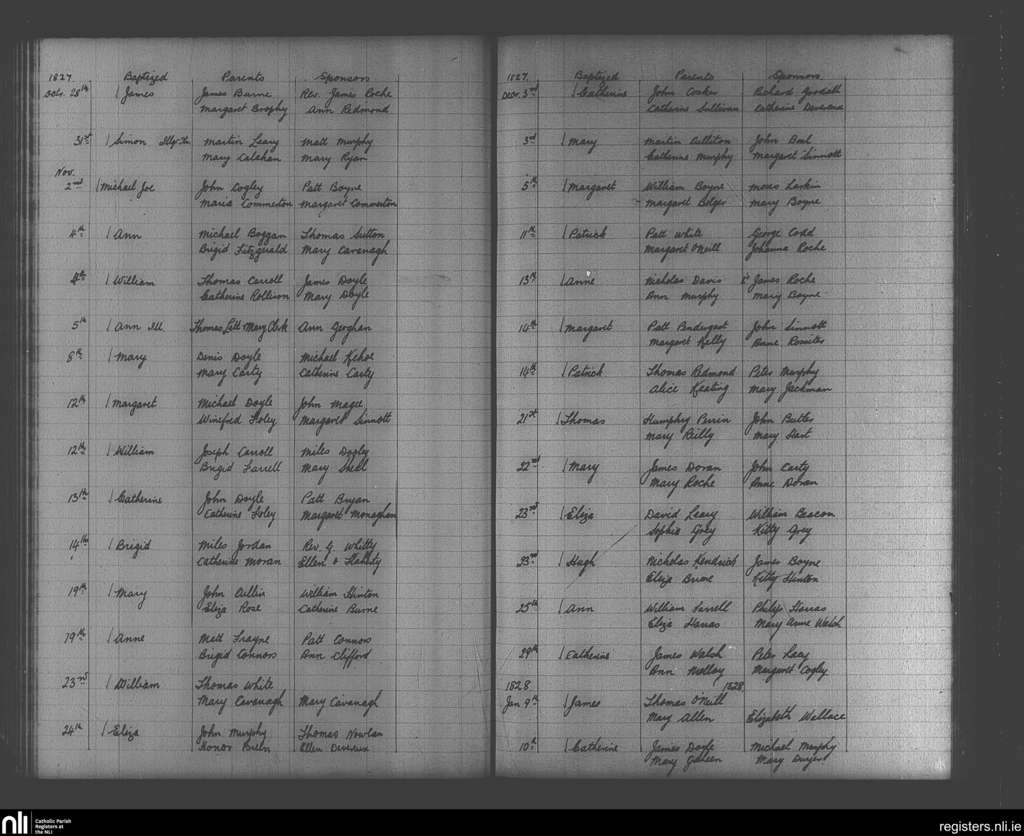 1827. Baptized Parents Sponsors
Octr. 28th James James Burne Rev. James Roche
Margaret Brophy Ann Redmond
31st Simon Martin Leary Matt Murphy
Mary Calahan Mary Ryan
Nov.
2nd Michael Joe John Cogley Patt Boyne
Maria Margaret
4th Ann Michael Boggan Thomas Sutton
Brigid Fitzgerald Mary Cavanagh
4th William Thomas Carroll James Doyle
Catherine Mary Doyle
5th Ann Ill Thomas Mary Clerk Ann Geoghan
8th Mary Denis Doyle Michael Kehoe
Mary Carty Catherine Carty
12th Margaret Michael Doyle John Magee
Winefred Foley Margaret Sinnott
12th William Joseph Carroll Miles
Brigid Farrell Mary
13th Catherine John Doyle Patt Bryan
Catherine Foley Margaret Monaghan
14th Brigid Miles Jordan Rev. G. Whitty
Catherine Moran Ellen O Flaherty
19th Mary John Cullin William Hinton
Eliza Rose Catherine Burne
19th Anne Matt Trayne Patt Connors
Brigid Connors Ann Clifford
23rd William Thomas White
Mary Cavanagh Mary Cavanagh
24th Eliza John Murphy Thomas Nowlan
Honor Ellen Devereux
1827. Baptized Parents Sponsors
Decr. 3rd Catherine John Cosker Richard Goodall
Catherine Sullivan Catherine Devereux
3rd Mary Martin John
Catherine Murphy Margaret Sinnott
5th Margaret William Boyne Moses Larkin
Margaret Bolger Mary Boyne
11th Patrick Patt White George Codd
Margaret O'Neill Johanna Roche
13th Anne Nicholas Davis James Roche
Ann Murphy Mary Boyne
14th Margaret Patt Pendergast John Sinnott
Margaret Kelly Rossiter
14th Patrick Thomas Redmond Peter Murphy
Alice Keating Mary Jackman
21st Thomas Humphry Perrin John Butler
Mary Reilly Mary
22nd Mary James Doran John Carty
Mary Roche Anne Doran
23rd Eliza David Leary William Beacon
Sophia Grey Kitty Grey
23rd Hugh Nicholas Kendrick James Boyne
Eliza Kitty Hinton
25th Ann William Farrell Philip Harras
Eliza Harras Mary Anne Walsh
29th Catherine James Walsh Peter Lacy
Ann Molloy Margaret Cogley
1828 1828
Jan 9th James Thomas O'Neill
Mary Allen Elizabeth Wallace
10th Catherine James Doyle Michael Murphy
Mary Mary Dwyer
nli
Catholic Parish
Registers at
the NLI
registers.nli.ie